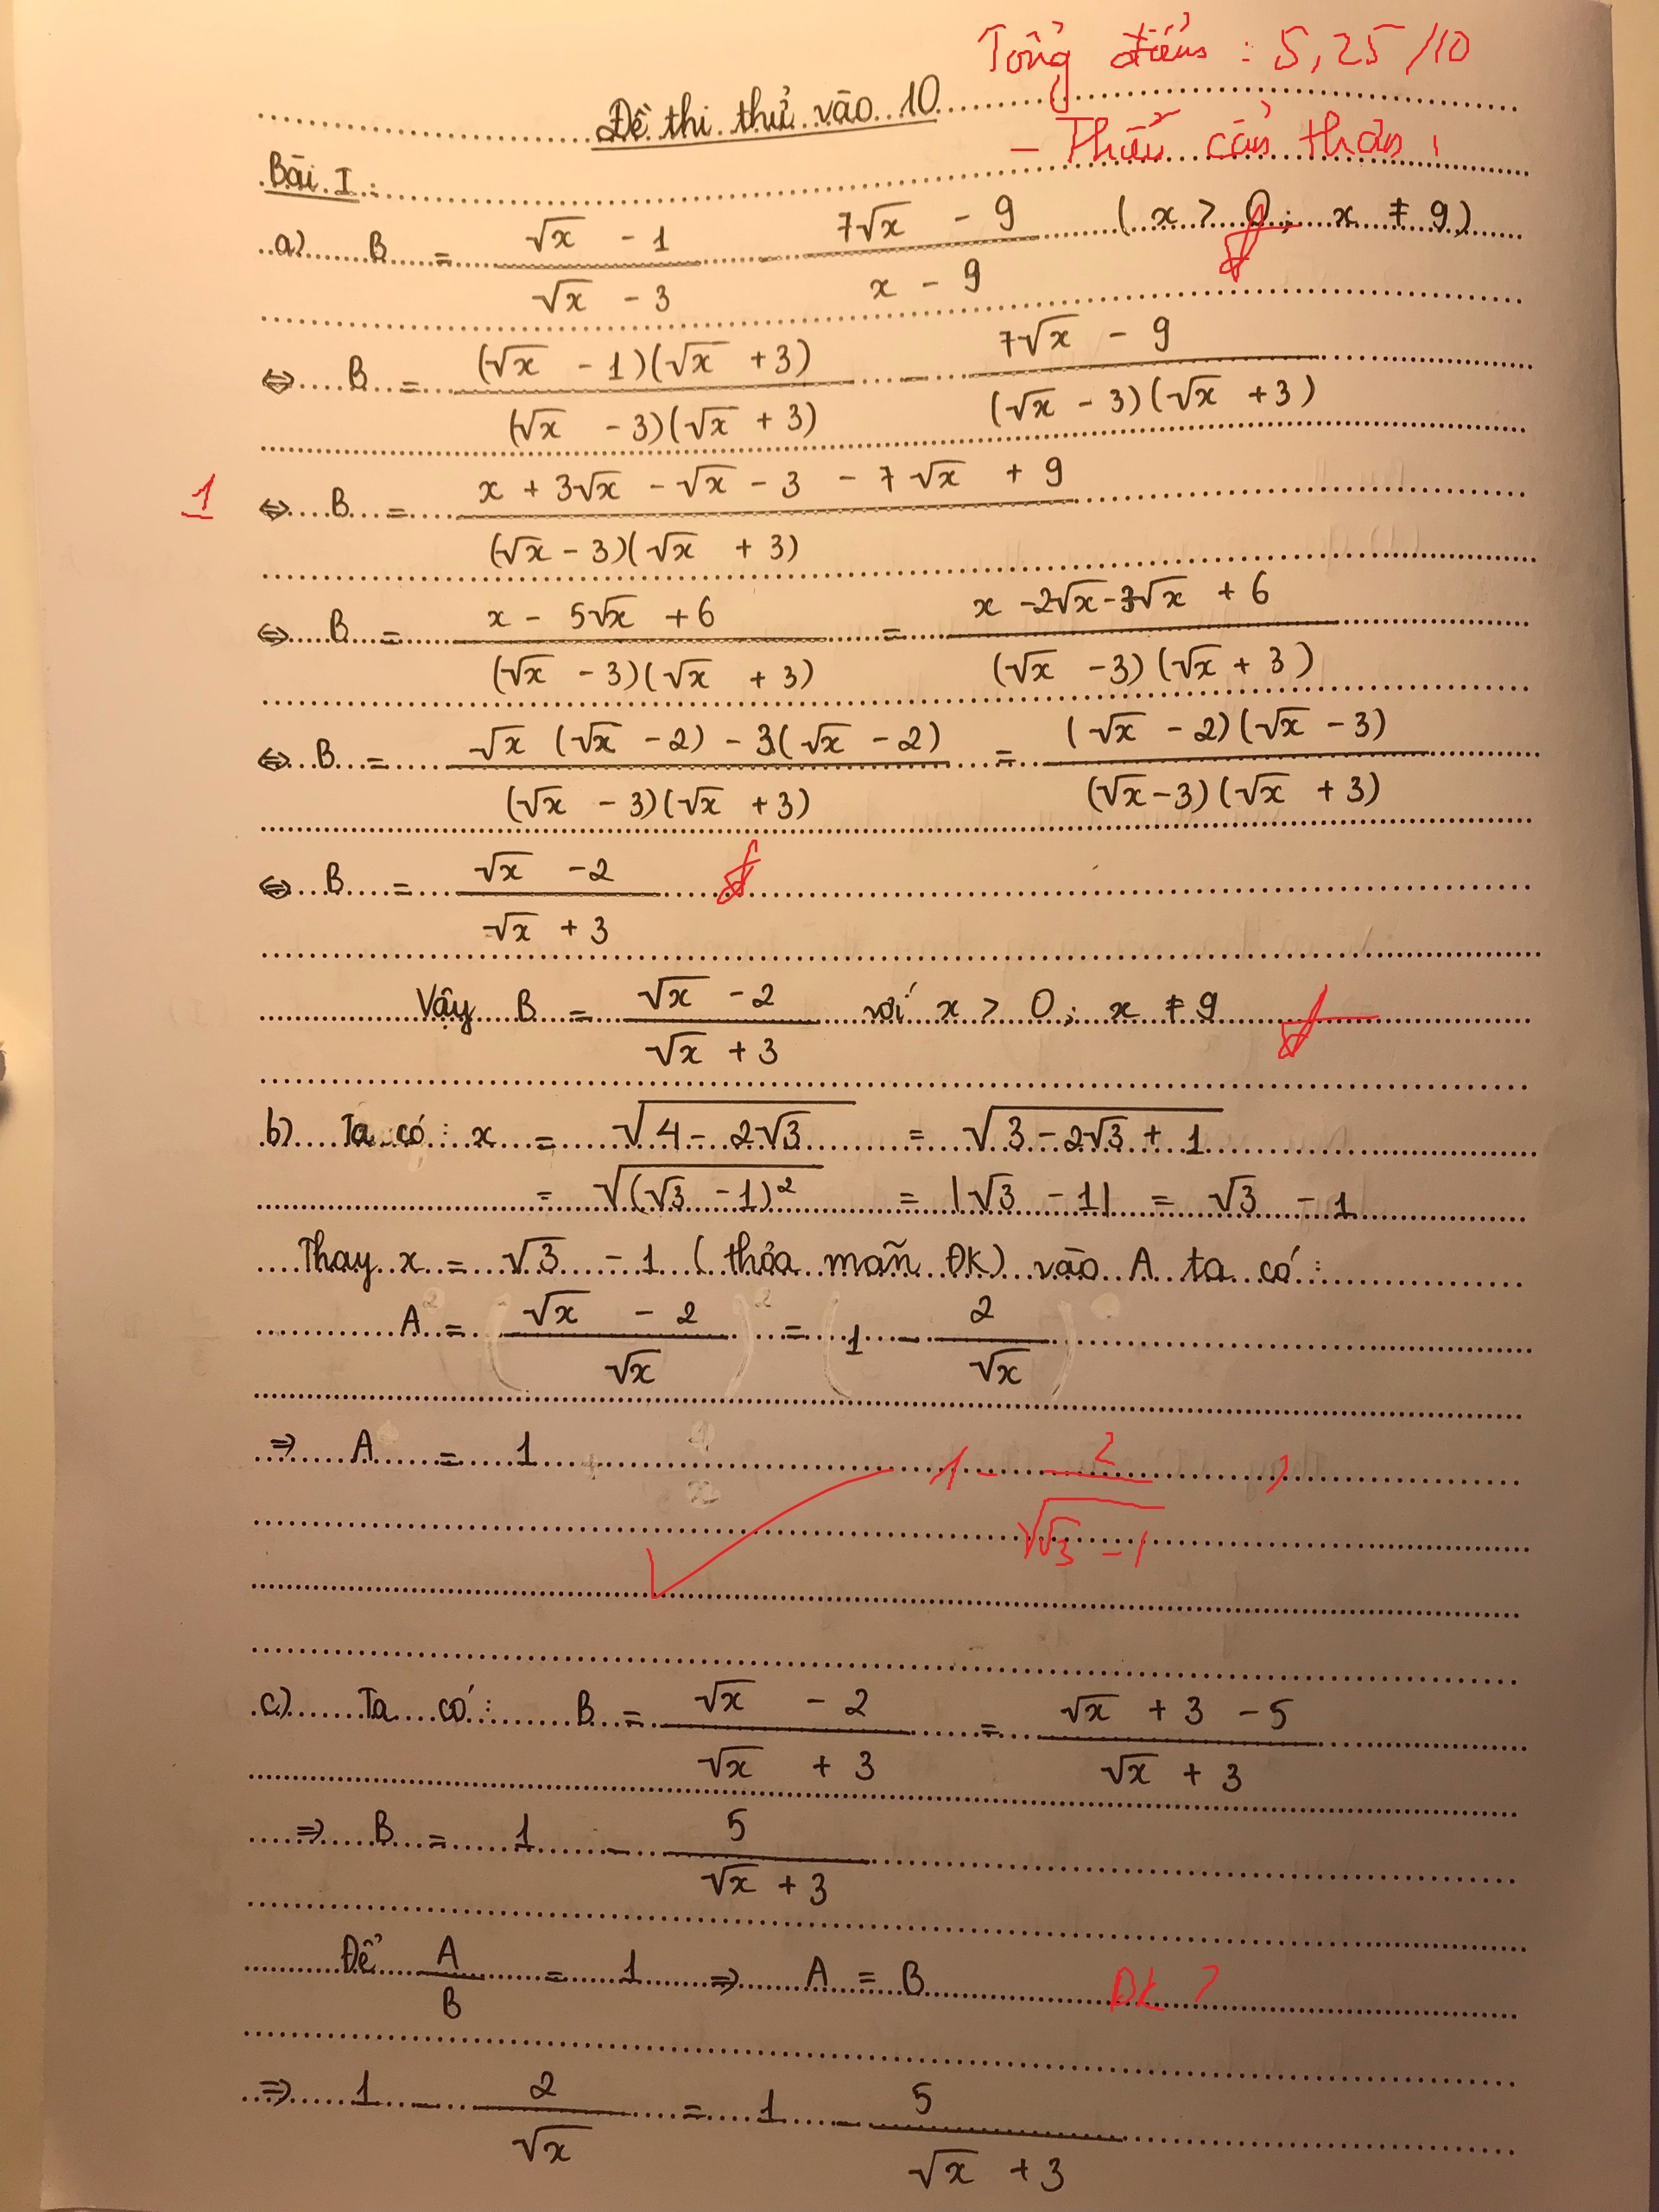 Tổng điểm : 5,25/10
Đề thi thử vào 10
- Thiếu cẩn thận !
Bài I :
a) B = (√x - 1)/(√x - 3) - (7√x - 9)/(x - 9) ( x > 0 ; x ≠ 9 )
⇔ B = ((√x - 1)(√x + 3))/((√x - 3)(√x + 3)) - (7√x - 9)/((√x - 3)(√x + 3))
1 ⇔ B = (x + 3√x - √x - 3 - 7√x + 9)/((√x - 3)(√x + 3))
⇔ B = (x - 5√x + 6)/((√x - 3)(√x + 3)) = (x - 2√x - 3√x + 6)/((√x - 3)(√x + 3))
⇔ B = (√x (√x - 2) - 3(√x - 2))/((√x - 3)(√x + 3)) = ((√x - 2)(√x - 3))/((√x - 3)(√x + 3))
⇔ B = (√x - 2)/(√x + 3)
Vậy B = (√x - 2)/(√x + 3) với x > 0 ; x ≠ 9
b) Ta có : x = √(4 - 2√3) = √(3 - 2√3 + 1)
= √((√3 - 1)²) = |√3 - 1| = √3 - 1
Thay x = √3 - 1 ( thỏa mãn ĐK) vào A ta có :
A = (√x - 2)/√x = 1 - 2/√x
⇒ A = 1 1 - 2/√(√3 - 1) ?
c) Ta có : B = (√x - 2)/(√x + 3) = (√x + 3 - 5)/(√x + 3)
⇒ B = 1 - 5/(√x + 3)
Để A/B = 1 ⇒ A = B ĐK ?
⇒ 1 - 2/√x = 1 - 5/(√x + 3)